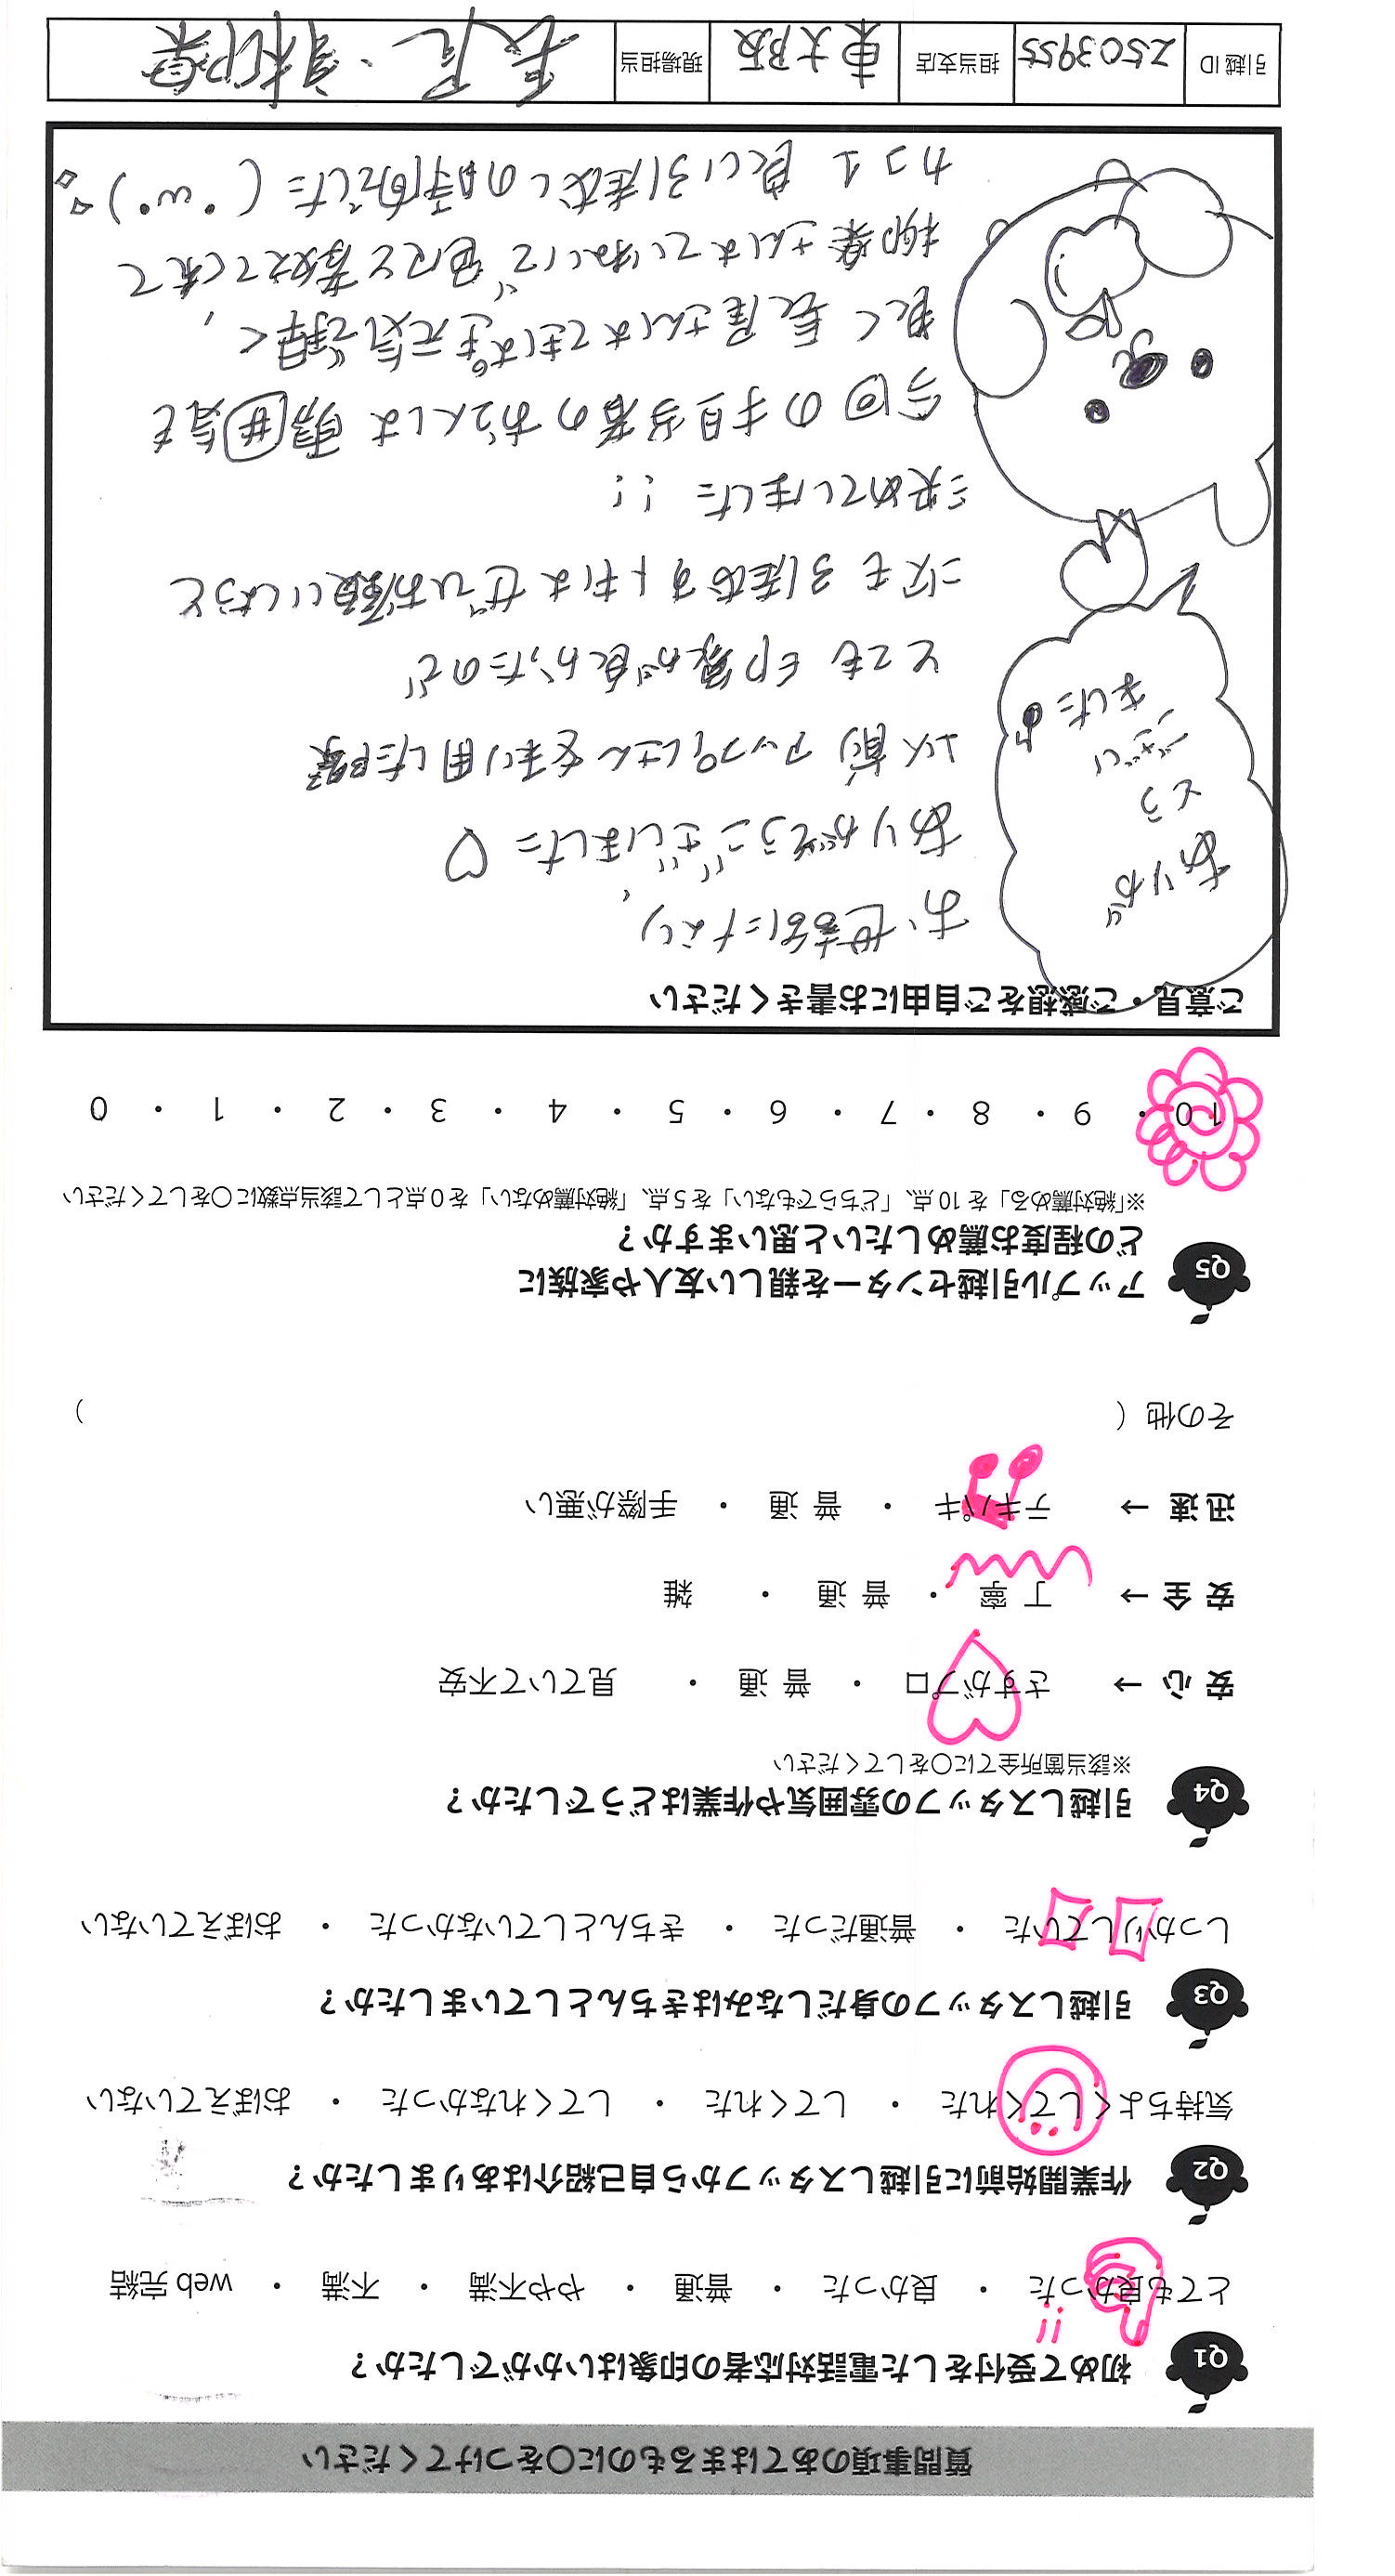 質問事項のあてはまるものに〇をつけてください
Q1 初めて受付をした電話対応者の印象はいかがでしたか？
とても良かった ・ 良かった ・ 普通 ・ やや不満 ・ 不満 ・ web 完結
!!
Q2 作業開始前に引越しスタッフから自己紹介はありましたか？
気持ちよくしてくれた ・ してくれた ・ してくれなかった ・ おぼえていない
Q3 引越しスタッフの身だしなみはきちんとしていましたか？
しっかりしていた ・ 普通だった ・ きちんとしていなかった ・ おぼえていない
Q4 引越しスタッフの雰囲気や作業はどうでしたか？
※該当箇所全てに〇をしてください
安 心 → さすがプロ ・ 普 通 ・ 見ていて不安
安 全 → 丁 寧 ・ 普 通 ・ 雑
迅 速 → テキパキ ・ 普 通 ・ 手際が悪い
その他（ ）
Q5 アップル引越センターを親しい友人や家族に
どの程度お薦めしたいと思いますか？
※「絶対薦める」を 10 点、「どちらでもない」を 5 点、「絶対薦めない」を 0 点として該当点数に〇をしてください
10 ・ 9 ・ 8 ・ 7 ・ 6 ・ 5 ・ 4 ・ 3 ・ 2 ・ 1 ・ 0
ご意見・ご感想をご自由にお書きください
ありが
とう
ござい
ました
お世話になり、
ありがとうございました♡
以前アップルさんを利用した際
とても印象が良かったので
次も引越す時はぜひお願いしようと
決めていました!!
今回の担当者のお2人は雰囲気も
良く長尾さんはてきぱき元気で早く、
柳楽さんはていねいで色々と教えてくれて
カコ1良い引越しの時間でした(･ω･)
引越 ID 2503955 担当支店 東大阪 現場担当 長尾・柳楽